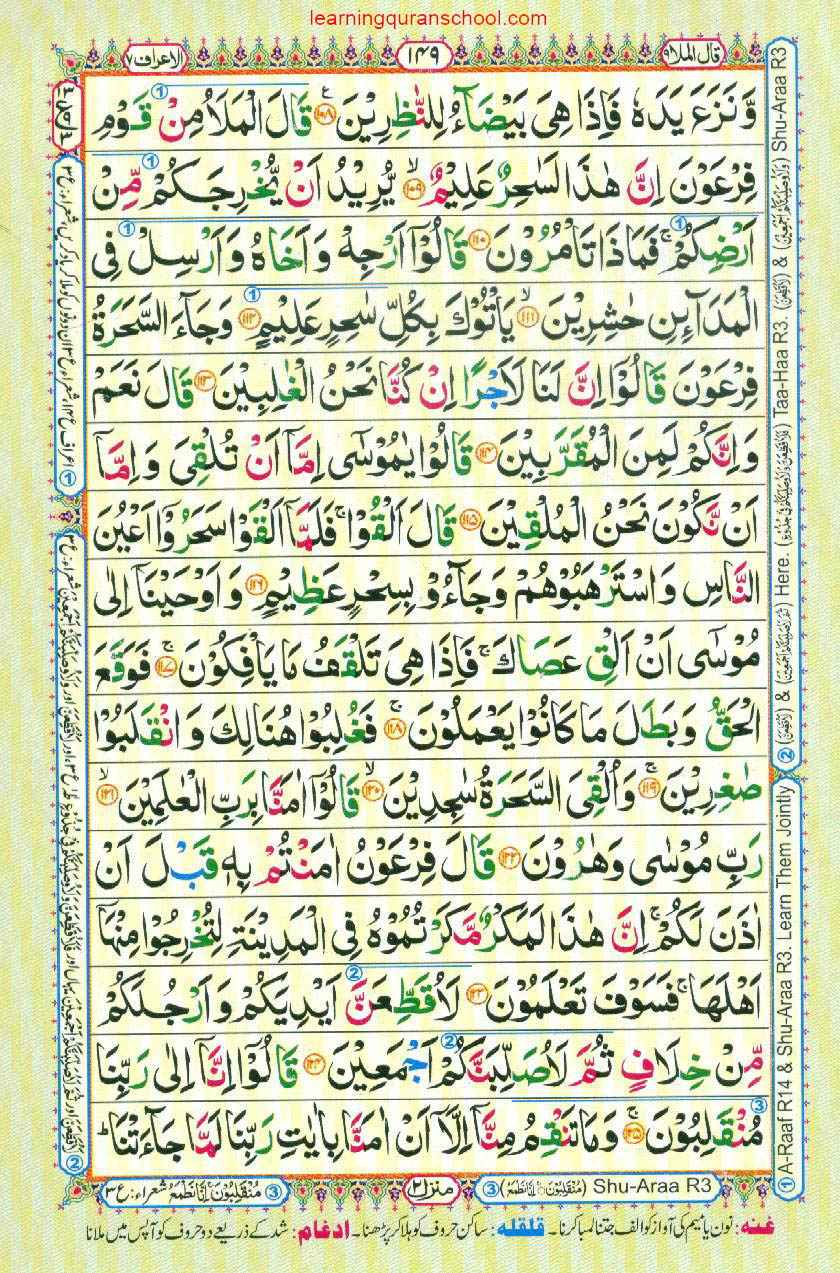 learningquranschool.com
قال الملا ٩
١٤٩
الاعراف ٧
وَّنَزَعَ يَدَهٗ فَاِذَا هِىَ بَيْضَآءُ لِلنّٰظِرِيْنَ ﴿۱۰۸﴾ قَالَ الْمَلَاُ مِنْ قَوْمِ
فِرْعَوْنَ اِنَّ هٰذَا لَسٰحِرٌ عَلِيْمٌ ﴿۱۰۹﴾ يُّرِيْدُ اَنْ يُّخْرِجَكُمْ مِّنْ
اَرْضِكُمْ ۚ فَمَاذَا تَاْمُرُوْنَ ﴿۱۱۰﴾ قَالُوْٓا اَرْجِهْ وَاَخَاهُ وَاَرْسِلْ فِى
الْمَدَآئِنِ حٰشِرِيْنَ ﴿۱۱۱﴾ يَاْتُوْكَ بِكُلِّ سٰحِرٍ عَلِيْمٍ ﴿۱۱۲﴾ وَجَآءَ السَّحَرَةُ
فِرْعَوْنَ قَالُوْٓا اِنَّ لَنَا لَاَجْرًا اِنْ كُنَّا نَحْنُ الْغٰلِبِيْنَ ﴿۱۱۳﴾ قَالَ نَعَمْ
وَاِنَّكُمْ لَمِنَ الْمُقَرَّبِيْنَ ﴿۱۱۴﴾ قَالُوْا يٰمُوْسٰٓى اِمَّآ اَنْ تُلْقِىَ وَاِمَّآ
اَنْ نَّكُوْنَ نَحْنُ الْمُلْقِيْنَ ﴿۱۱۵﴾ قَالَ اَلْقُوْا ۚ فَلَمَّآ اَلْقَوْا سَحَرُوْٓا اَعْيُنَ
النَّاسِ وَاسْتَرْهَبُوْهُمْ وَجَآءُوْ بِسِحْرٍ عَظِيْمٍ ﴿۱۱۶﴾ وَاَوْحَيْنَآ اِلٰى
مُوْسٰٓى اَنْ اَلْقِ عَصَاكَ ۚ فَاِذَا هِىَ تَلْقَفُ مَا يَاْفِكُوْنَ ﴿۱۱۷﴾ فَوَقَعَ
الْحَقُّ وَبَطَلَ مَا كَانُوْا يَعْمَلُوْنَ ﴿۱۱۸﴾ فَغُلِبُوْا هُنَالِكَ وَانْقَلَبُوْا
صٰغِرِيْنَ ﴿۱۱۹﴾ وَاُلْقِىَ السَّحَرَةُ سٰجِدِيْنَ ﴿۱۲۰﴾ قَالُوْٓا اٰمَنَّا بِرَبِّ الْعٰلَمِيْنَ ﴿۱۲۱﴾
رَبِّ مُوْسٰى وَهٰرُوْنَ ﴿۱۲۲﴾ قَالَ فِرْعَوْنُ اٰمَنْتُمْ بِهٖ قَبْلَ اَنْ
اٰذَنَ لَكُمْ ۚ اِنَّ هٰذَا لَمَكْرٌ مَّكَرْتُمُوْهُ فِى الْمَدِيْنَةِ لِتُخْرِجُوْا مِنْهَآ
اَهْلَهَا ۚ فَسَوْفَ تَعْلَمُوْنَ ﴿۱۲۳﴾ لَاُقَطِّعَنَّ اَيْدِيَكُمْ وَاَرْجُلَكُمْ
مِّنْ خِلَافٍ ثُمَّ لَاُصَلِّبَنَّكُمْ اَجْمَعِيْنَ ﴿۱۲۴﴾ قَالُوْٓا اِنَّآ اِلٰى رَبِّنَا
مُنْقَلِبُوْنَ ﴿۱۲۵﴾ وَمَا تَنْقِمُ مِنَّآ اِلَّآ اَنْ اٰمَنَّا بِاٰيٰتِ رَبِّنَا لَمَّا جَآءَتْنَا ؕ
① A-Raaf R14 & Shu-Araa R3. Learn Them Jointly
② Here. Taa-Haa R3. & Shu-Araa R3
③ (مُنْقَلِبُوْنَ اِنَّا نَطْمَعُ) Shu-Araa R3
منزل ٢
③ مُنْقَلِبُوْنَ اِنَّا نَطْمَعُ شعراء: ع ٣
غنه: نون یا میم کی آواز کو الف جتنا لمبا کرنا۔ قلقله: ساکن حروف کو ہلا کر پڑھنا۔ ادغام: شد کے ذریعے دو حروف کو آپس میں ملانا